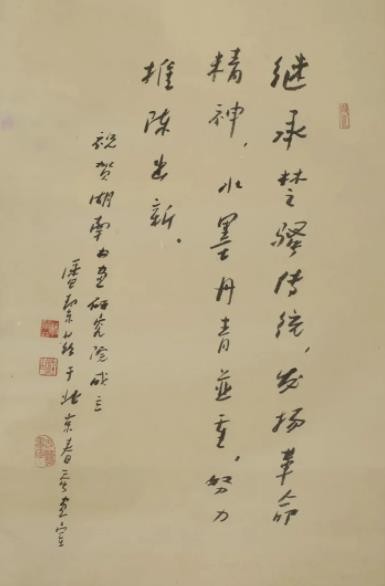 继承楚骚传统，发扬革命
精神，水墨丹青並重，努力
推陈出新。
祝贺湖南书画研究院成立
潘絜兹于北京春蚕画室